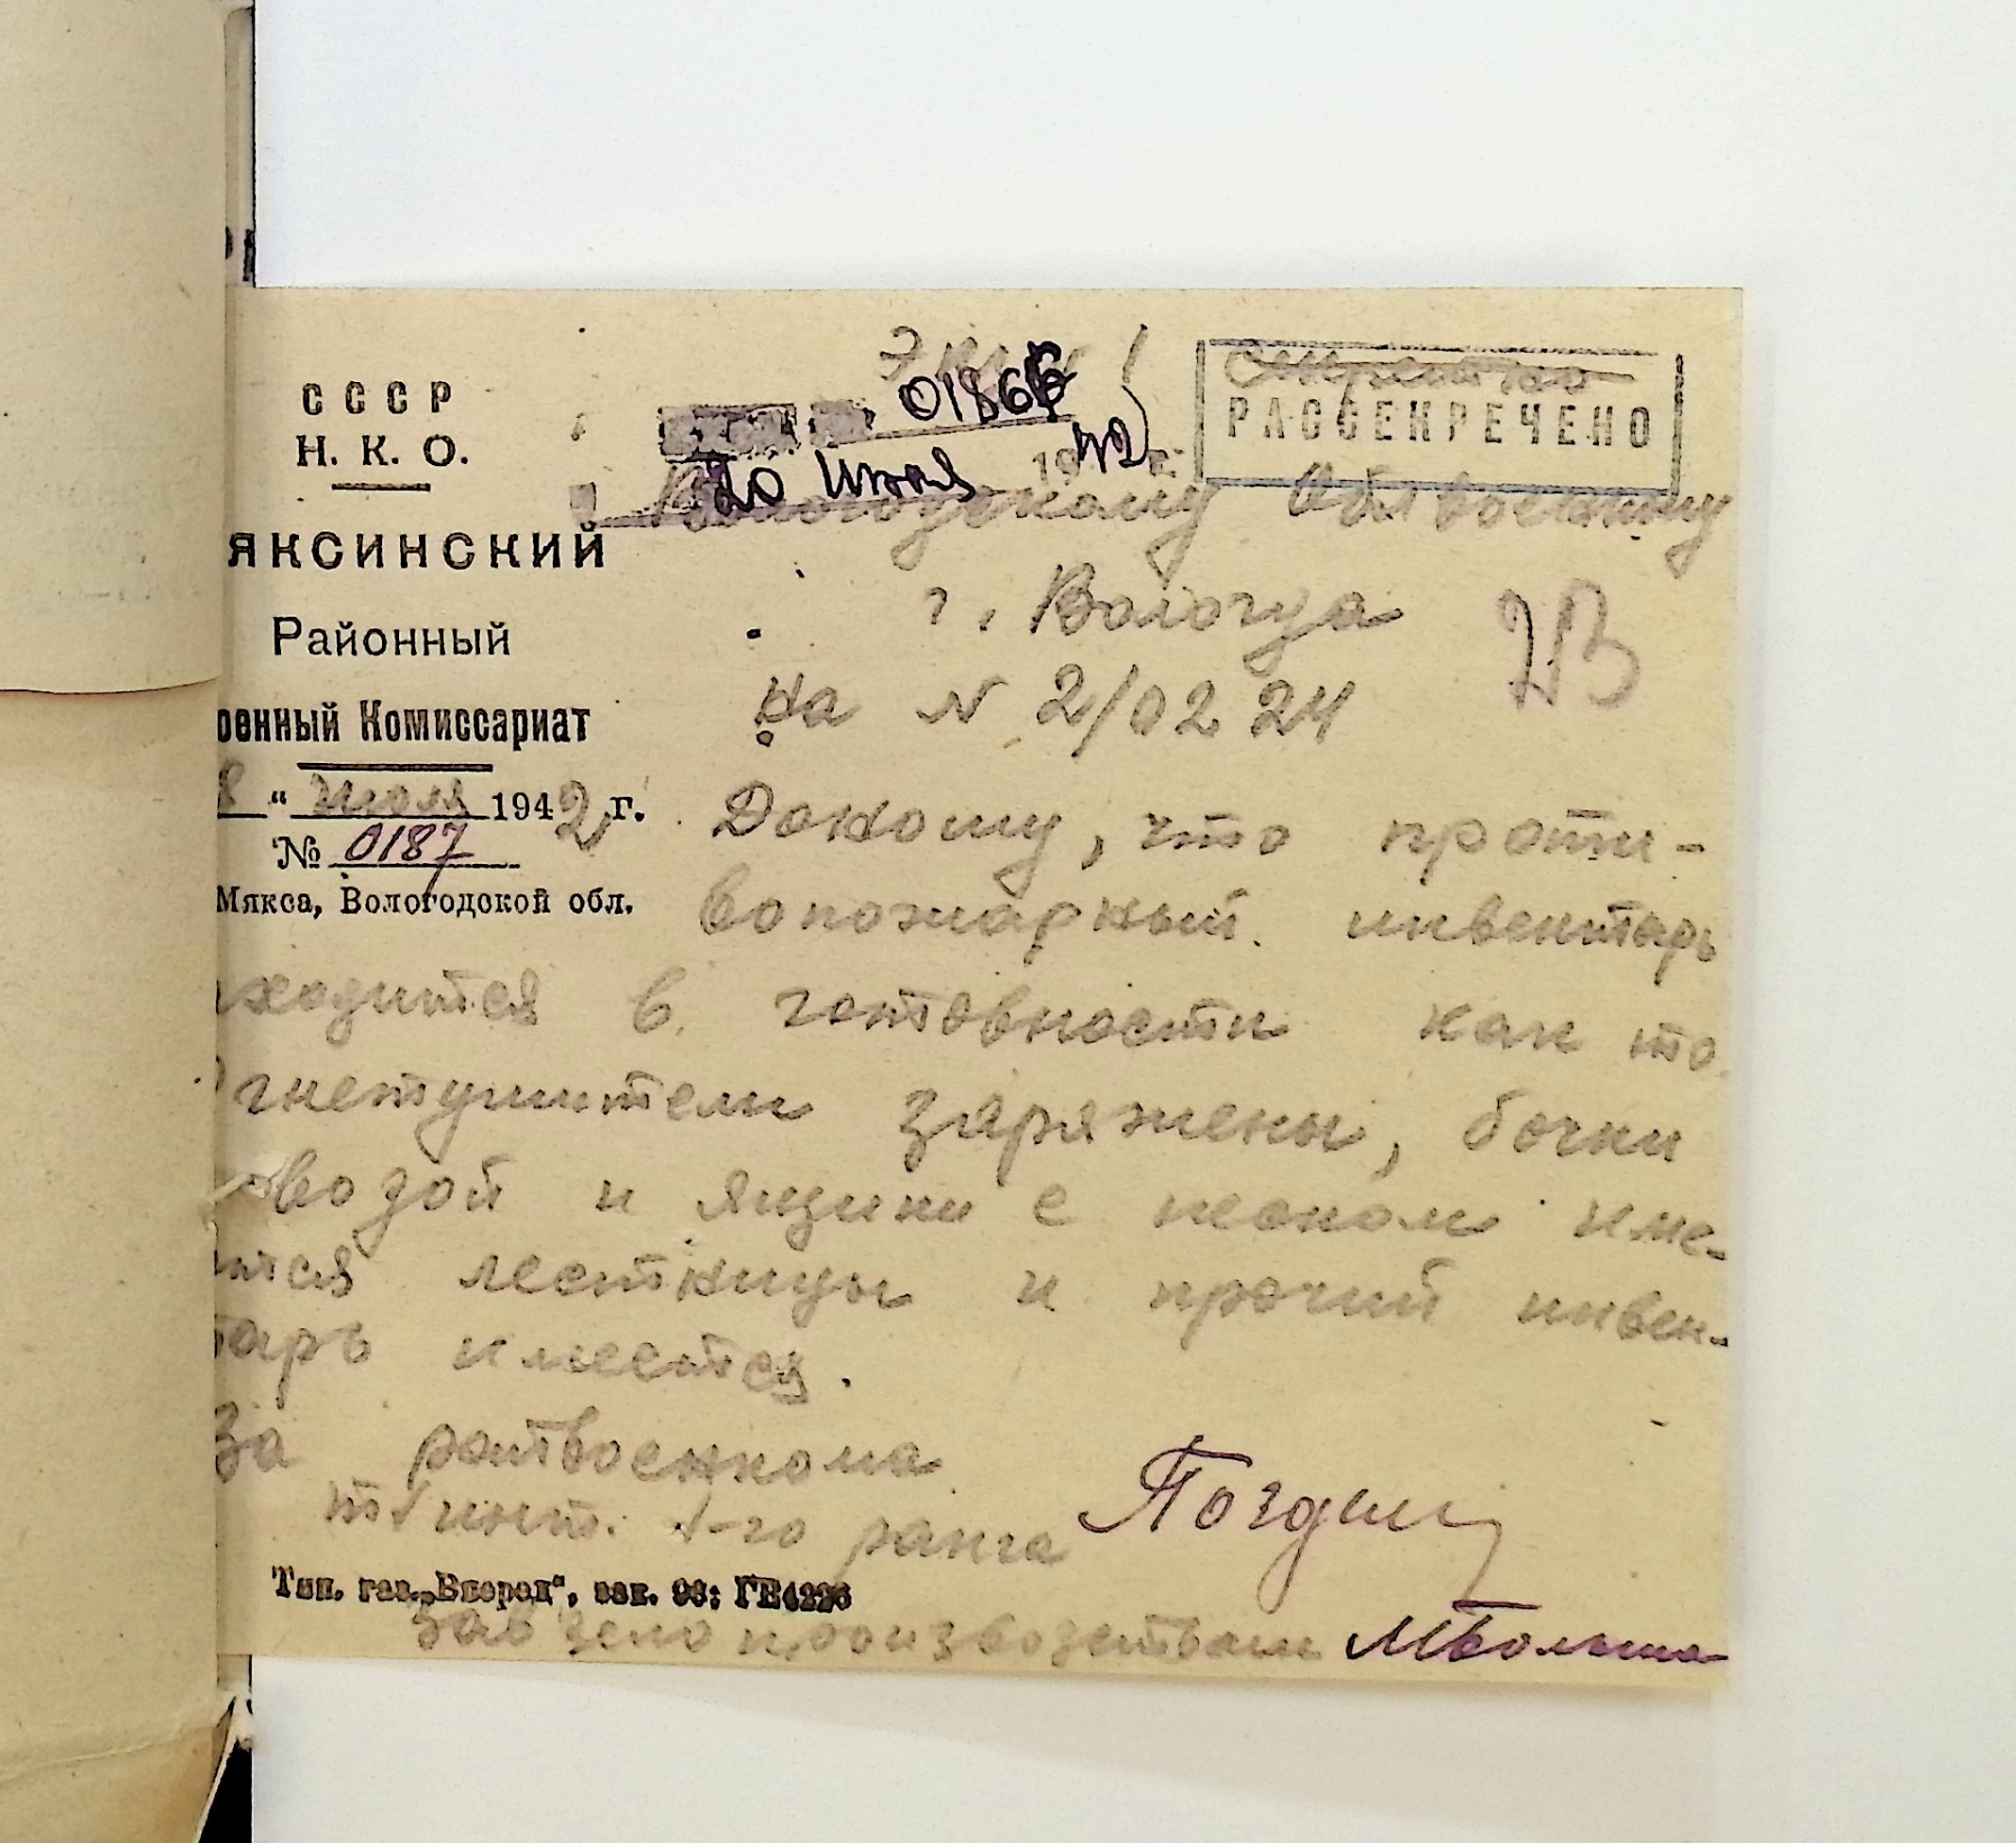 СССР
Н. К. О.
яксинский
Районный
оенный Комиссариат
8 " июля 1942 г.
№ 0187
Мякса, Вологодской обл.
Экз 1
01866
20 Июля 1942 г.
Секретно
РАССЕКРЕЧЕНО
Вологодскому Облвоенкому
г. Вологда
на № 2/0224
23
Доношу, что проти-
вопожарный инвентарь
аходится в готовности как то
огнетушители заряжены, бочки
с водой и ящики с песком име-
ются лестницы и прочий инвен-
тарь имеется.
За райвоенкома
т/инт. 1-го ранга
Тип. газ. „Вперед“, зак. 98; ГЕ4226
Зав делопроизводством